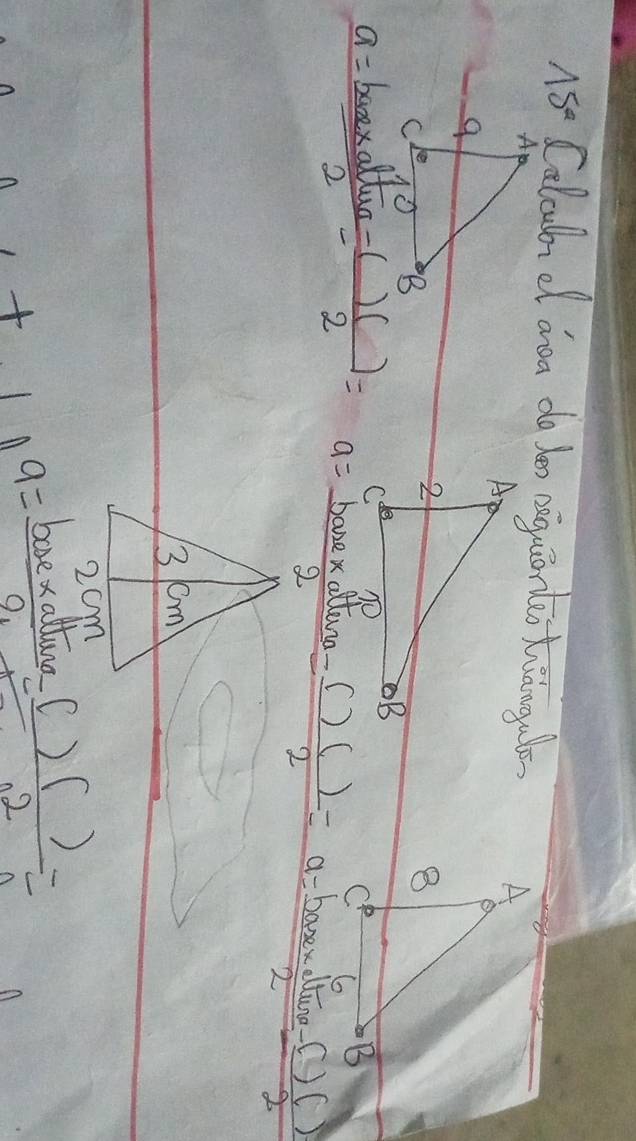 15ª Calcular el área de los siguientes triángulos
A
9
C
10
B
a = base x altura = ( ) ( ) =
2 2
A
2
C
10
B
a = base x altura = ( ) ( ) =
2 2
A
8
C
6
B
a = base x altura = ( ) ( )
2 2
3 cm
2 cm
a = base x altura = ( ) ( ) =
2 2